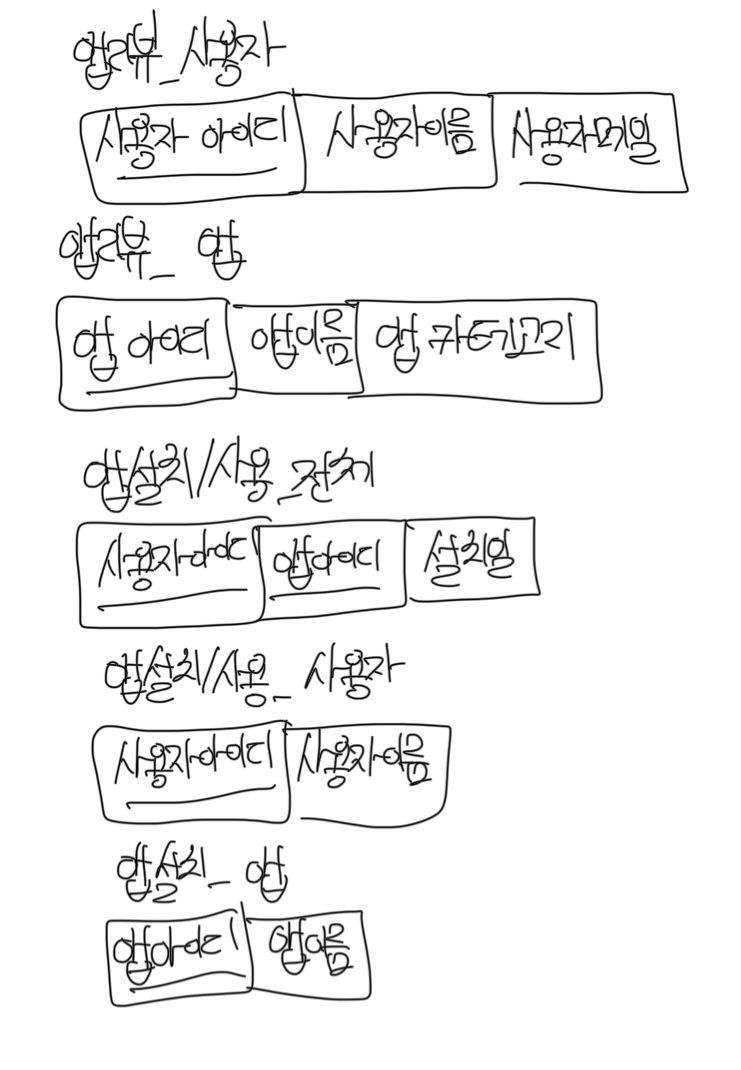 앱리뷰_사용자
사용자 아이디 사용자이름 사용자메일
앱리뷰_ 앱
앱 아이디 앱이름 앱 카테고리
앱설치/사용_전체
사용자아이디 앱아이디 설치일
앱설치/사용_ 사용자
사용자아이디 사용자이름
앱설치_ 앱
앱아이디 앱이름